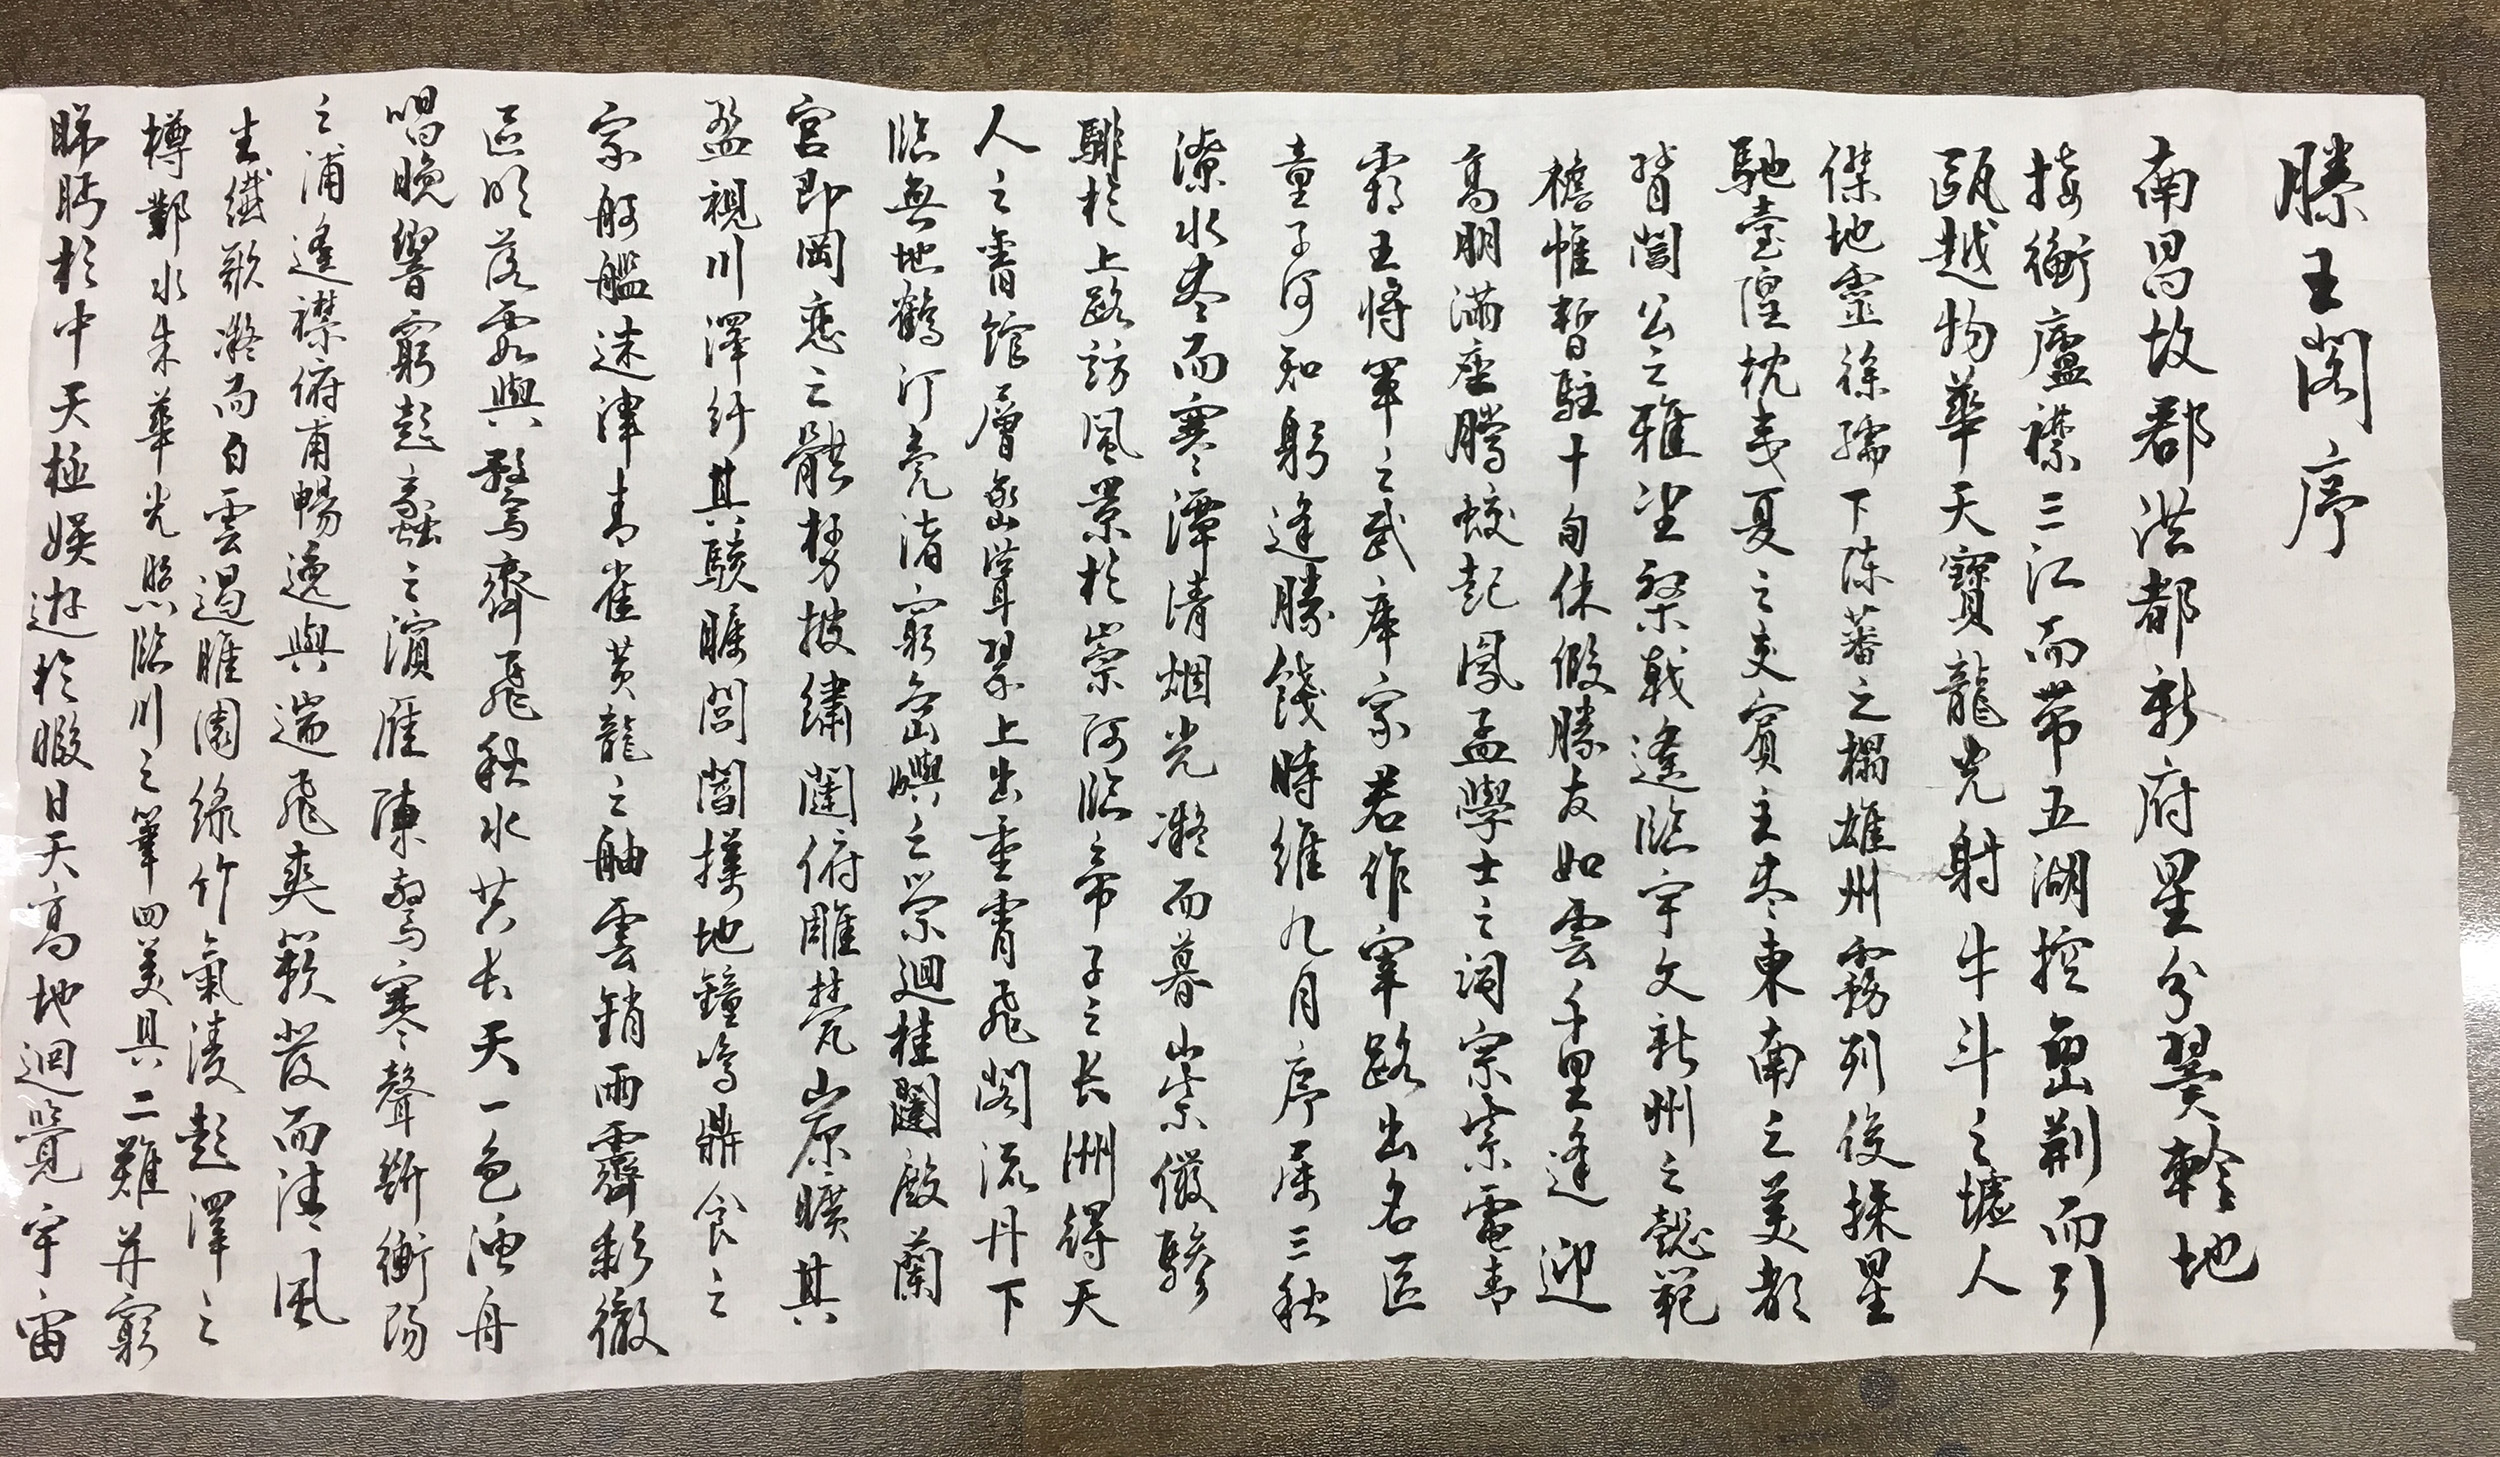 滕王閣序
南昌故郡洪都新府星分翼軫地
接衡廬襟三江而帶五湖控蠻荆而引
甌越物華天寶龍光射牛斗之墟人
傑地靈徐孺下陳蕃之榻雄州霧列俊採星
馳臺隍枕夷夏之交賓主盡東南之美都
督閻公之雅望棨戟遙臨宇文新州之懿範
襜帷暫駐十旬休假勝友如雲千里逢迎
高朋滿座騰蛟起鳳孟學士之詞宗紫電青
霜王將軍之武庫家君作宰路出名區
童子何知躬逢勝餞時維九月序屬三秋
潦水盡而寒潭清烟光凝而暮山紫儼驂
騑於上路訪風景於崇阿臨帝子之長洲得天
人之舊館層巒聳翠上出重霄飛閣流丹下
臨無地鶴汀鳧渚窮島嶼之縈迴桂殿蘭
宮即岡巒之體勢披繡闥俯雕甍山原曠其
盈視川澤紆其駭矚閭閻撲地鐘鳴鼎食之
家舸艦迷津青雀黃龍之舳雲銷雨霽彩徹
區明落霞與孤鶩齊飛秋水共長天一色漁舟
唱晚響窮彭蠡之濱雁陣驚寒聲斷衡陽
之浦遙襟俯甫暢逸興遄飛爽籟發而清風
生纖歌凝而白雲遏睢園綠竹氣凌彭澤之
樽鄴水朱華光照臨川之筆四美具二難并窮
睇眄於中天極娛遊於暇日天高地迥覺宇宙